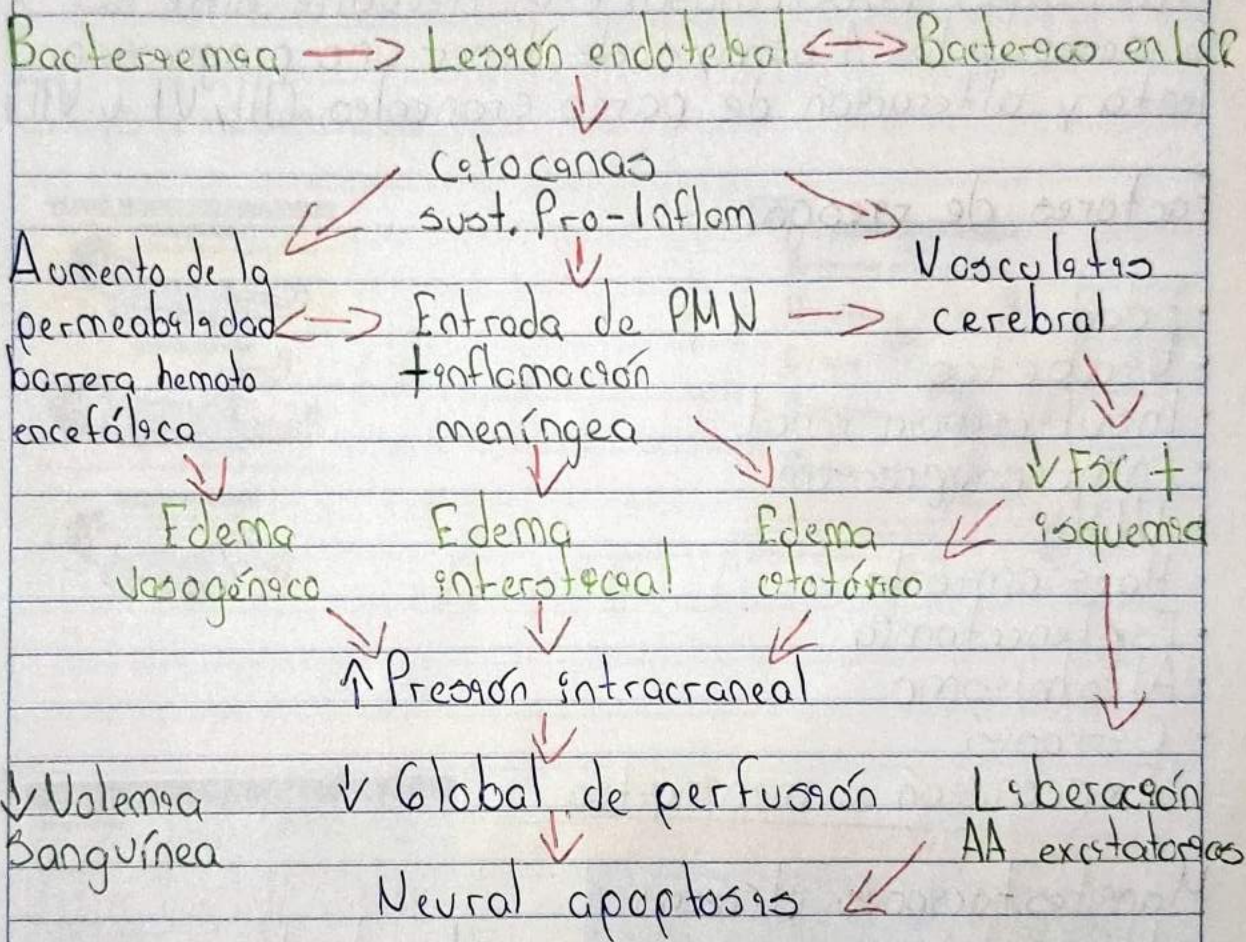 Bacteriemia → Lesión endotelial ↔ Bacterias en LCR
↓
Citocinas
sust. Pro-Inflam
Aumento de la
permeabilidad
barrera hemato
encefálica
↔ Entrada de PMN →
+inflamación
meníngea
Vasculitis
cerebral
↓ FSC +
isquemia
Edema
vasogénico
Edema
intersticial
Edema
citotóxico
↑ Presión intracraneal
↓ Volemia
Sanguínea
↓ Global de perfusión
Liberación
AA exitatorios
Neural apoptosis